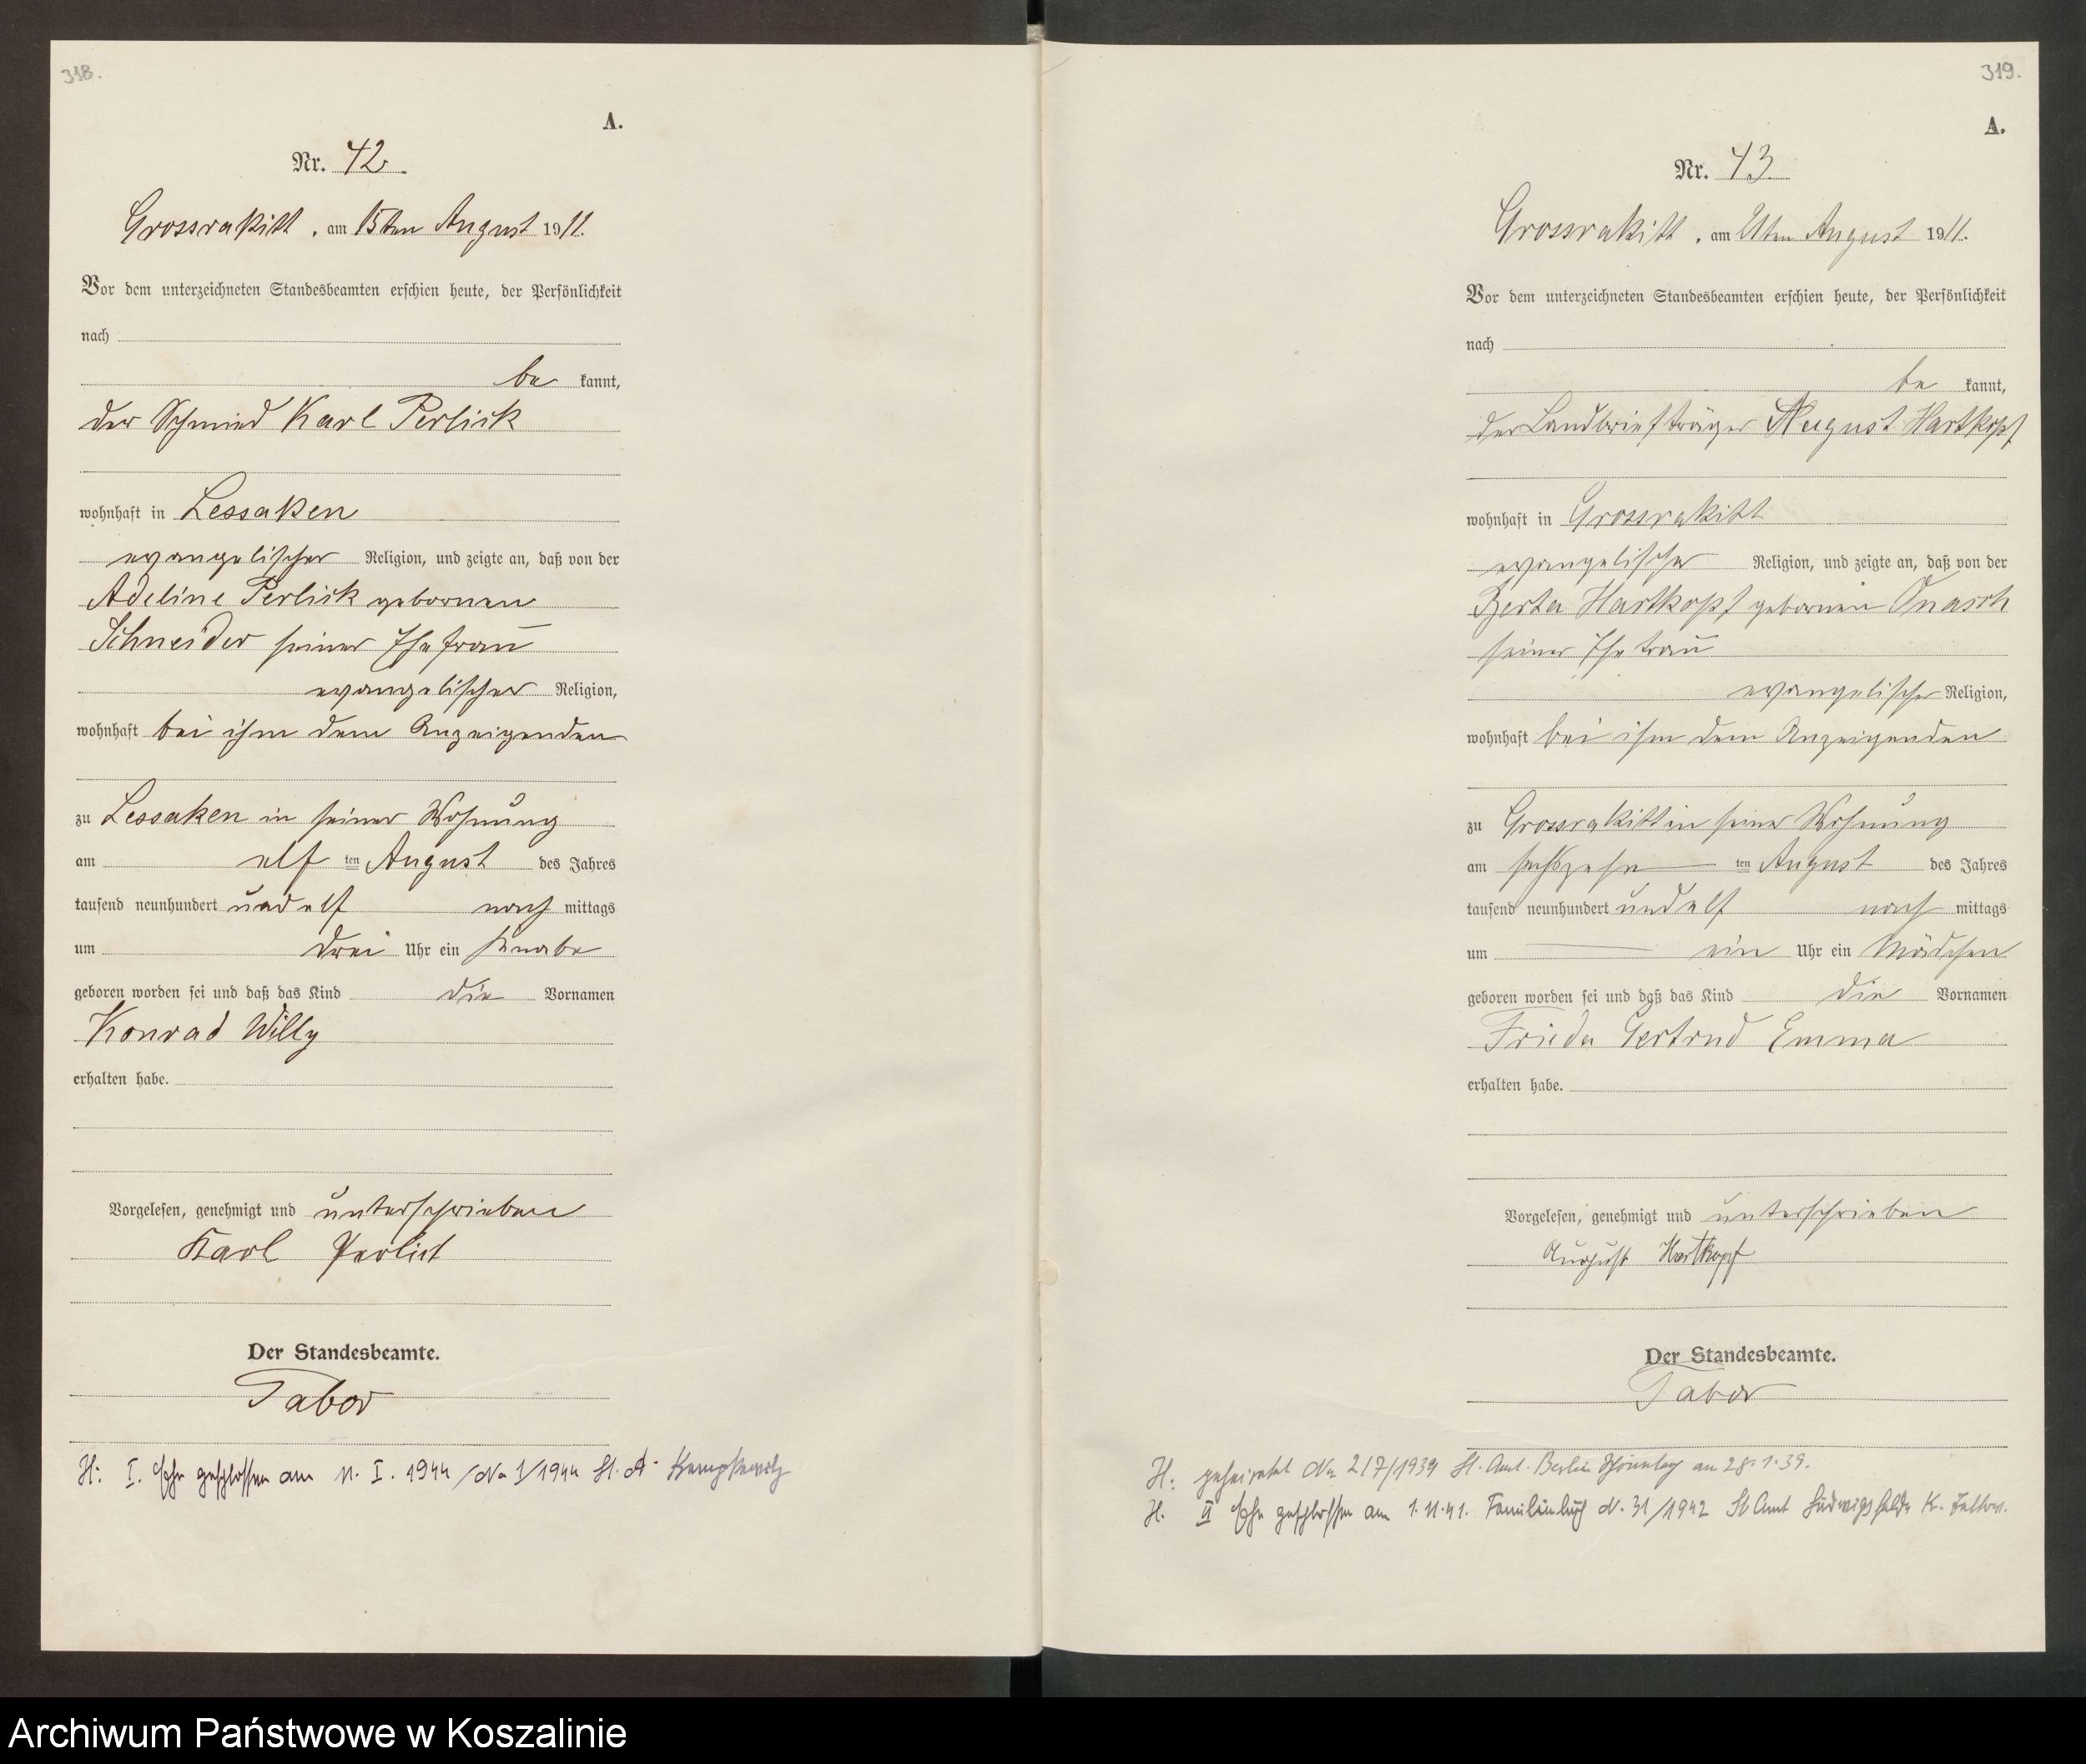 318.
A.
Nr. 42.
Grossrakitt, am 15ten August 1911.
Vor dem unterzeichneten Standesbeamten erschien heute, der Persönlichkeit
nach
be kannt,
der Schmied Karl Perlick
wohnhaft in Lessaken
evangelischer Religion, und zeigte an, daß von der
Adeline Perlick gebornen
Schneider seiner Ehefrau
evangelischer Religion,
wohnhaft bei ihm dem Anzeigenden
zu Lessaken in seiner Wohnung
am elf ten August des Jahres
tausend neunhundert und elf nach mittags
um drei Uhr ein Knabe
geboren worden sei und daß das Kind die Vornamen
Konrad Willy
erhalten habe.
Vorgelesen, genehmigt und unterschrieben
Karl Perlick
Der Standesbeamte.
Tabor
H: I. Ehe geschlossen am 11. I. 1944 /No 1/1944 St. A.
319.
A.
Nr. 43.
Grossrakitt, am 21ten August 1911.
Vor dem unterzeichneten Standesbeamten erschien heute, der Persönlichkeit
nach
be kannt,
der Landbriefträger August Hartkopf
wohnhaft in Grossrakitt
evangelischer Religion, und zeigte an, daß von der
Berta Hartkopf gebornen Onasch
seiner Ehefrau
evangelischer Religion,
wohnhaft bei ihm dem Anzeigenden
zu Grossrakitt in seiner Wohnung
am sechszehn ten August des Jahres
tausend neunhundert und elf nach mittags
um ein Uhr ein Mädchen
geboren worden sei und daß das Kind die Vornamen
Frieda Gertrud Emma
erhalten habe.
Vorgelesen, genehmigt und unterschrieben
August Hartkopf
Der Standesbeamte.
Tabor
H: geheiratet No 217/1939 St. Amt. Berlin am 28.1.39.
H. II Ehe geschlossen am 1.11.41. Familienbuch N. 31/1942 St Amt Ludwigsfelde Kr. Teltow.
Archiwum Państwowe w Koszalinie